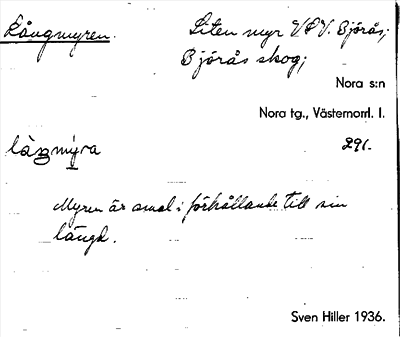 Långmyren.
Liten myr VSV. Björås;
Björås skog;
Nora s:n
Nora tg., Västernorrl. l.
291.
myra
Myren är smal i förhållande till sin
längd.
Sven Hiller 1936.